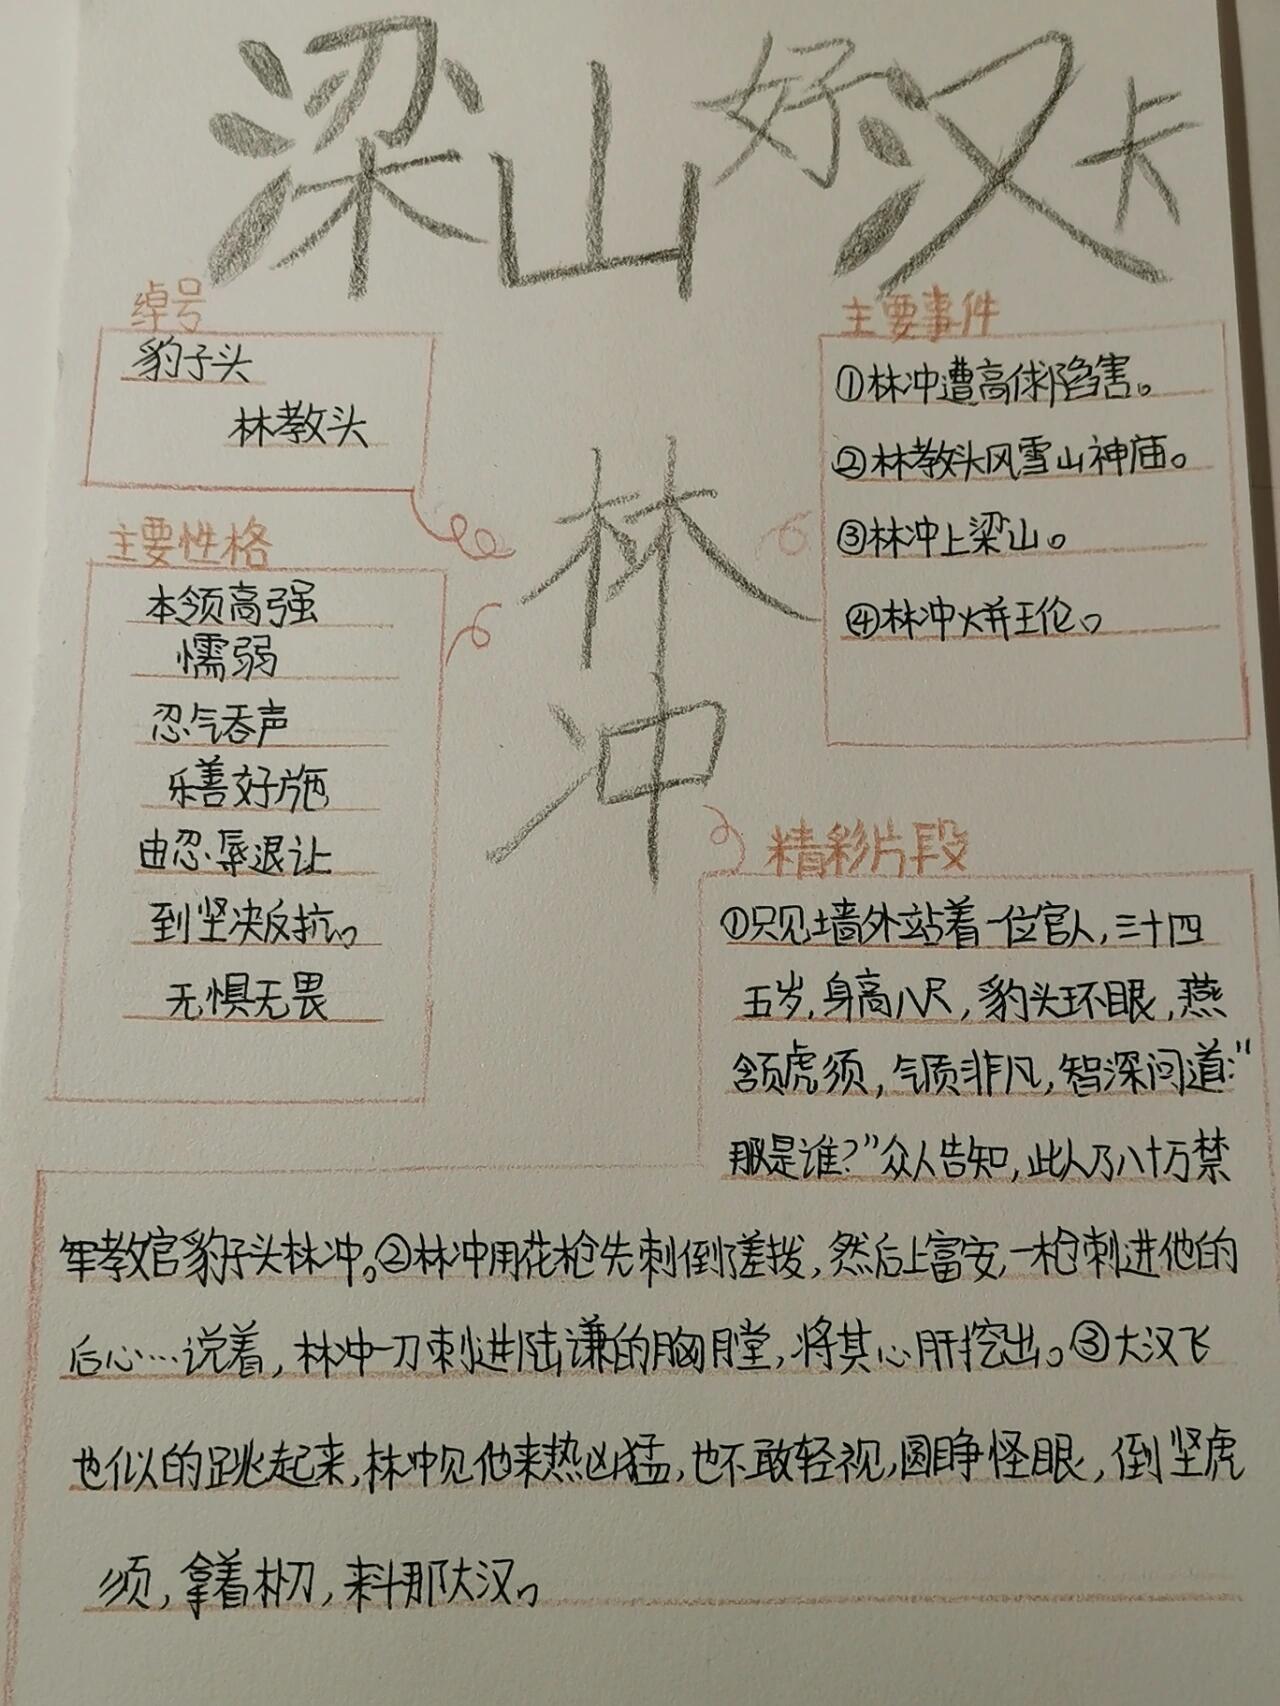 梁山好汉卡
绰号
豹子头
林教头
主要性格
本领高强
懦弱
忍气吞声
乐善好施
由忍辱退让
到坚决反抗。
无惧无畏
林冲
主要事件
①林冲遭高俅陷害。
②林教头风雪山神庙。
③林冲上梁山。
④林冲火并王伦。
精彩片段
①只见墙外站着一位官人,三十四
五岁,身高八尺,豹头环眼,燕
颔虎须,气质非凡,智深问道:"
那是谁?"众人告知,此人乃八十万禁
军教官豹子头林冲。②林冲用花枪先刺倒差拨,然后上富安,一枪刺进他的
后心…说着,林冲一刀刺进陆谦的胸膛,将其心肝挖出。③大汉飞
也似的跳起来,林冲见他来热凶猛,也不敢轻视,圆睁怪眼,倒坚虎
须,拿着朴刀,来斗那大汉。